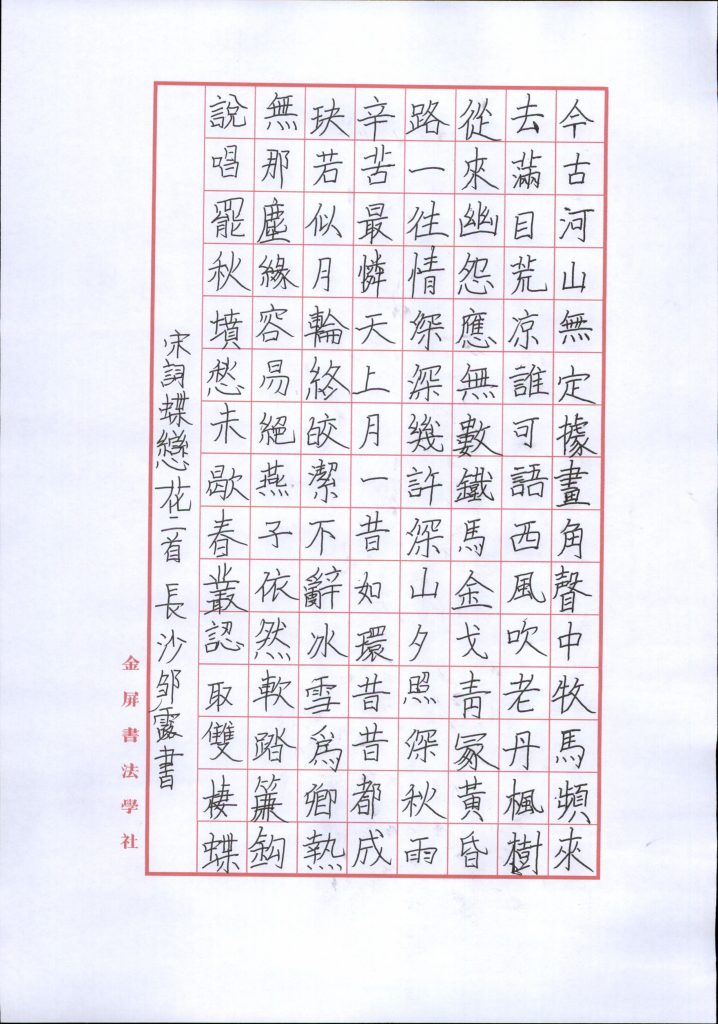 今古河山無定據畫角聲中牧馬頻來
去滿目荒凉誰可語西風吹老丹楓樹
從來幽怨應無數鐵馬金戈青冢黃昏
路一往情深深幾許深山夕照深秋雨
辛苦最憐天上月一昔如環昔昔都成
玦若似月輪終皎潔不辭冰雪爲卿熱
無那塵緣容易絕燕子依然軟踏簾鈎
說唱罷秋墳愁未歇春叢認取雙棲蝶
宋詞蝶戀花二首 長沙邹露書
金屏書法學社